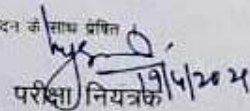 दन के साथ प्रेषित।
19/4/2021
परीक्षा नियंत्रक